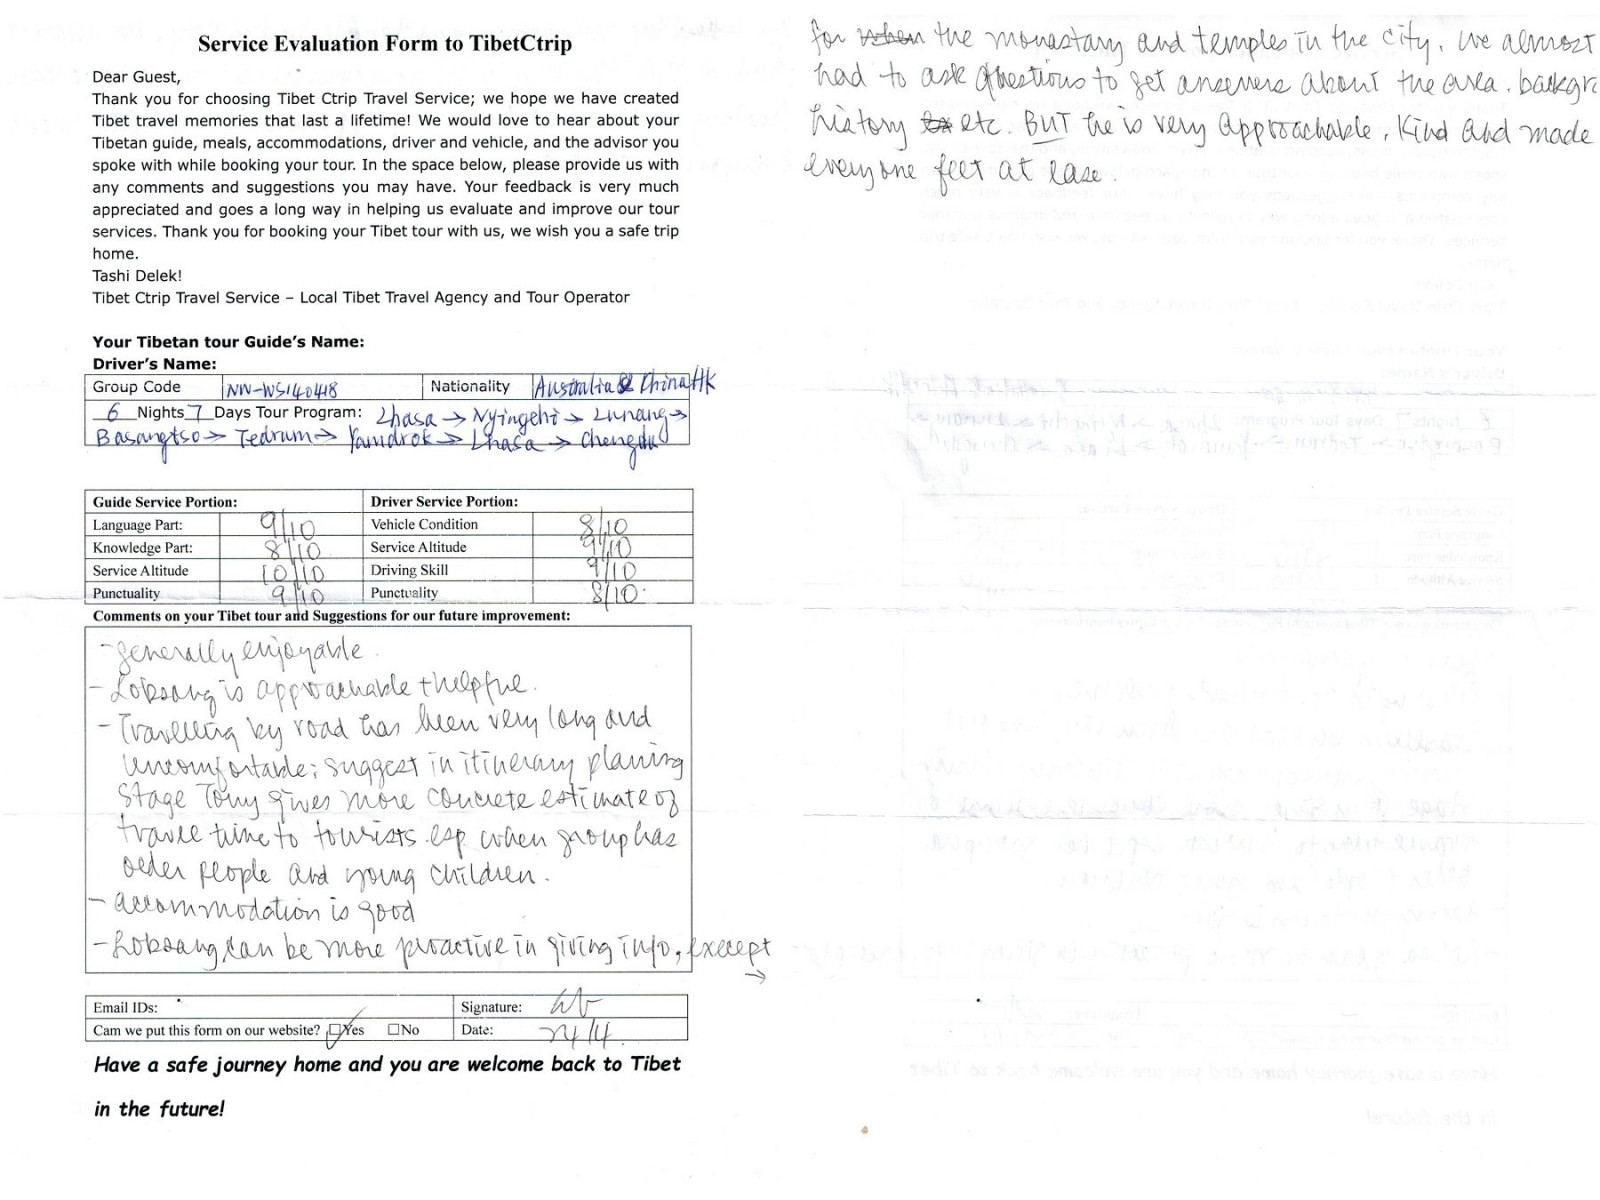 Service Evaluation Form to TibetCtrip
Dear Guest,
Thank you for choosing Tibet Ctrip Travel Service; we hope we have created
Tibet travel memories that last a lifetime! We would love to hear about your
Tibetan guide, meals, accommodations, driver and vehicle, and the advisor you
spoke with while booking your tour. In the space below, please provide us with
any comments and suggestions you may have. Your feedback is very much
appreciated and goes a long way in helping us evaluate and improve our tour
services. Thank you for booking your Tibet tour with us, we wish you a safe trip
home.
Tashi Delek!
Tibet Ctrip Travel Service – Local Tibet Travel Agency and Tour Operator
Your Tibetan tour Guide's Name:
Driver's Name:
Group Code NW-WS140418 Nationality Australia & China HK
6 Nights 7 Days Tour Program: Lhasa → Nyingchi → Lunang →
Basangtso → Tedrum → Yamdrok → Lhasa → Chengdu
Guide Service Portion: Driver Service Portion:
Language Part: 9/10 Vehicle Condition 8/10
Knowledge Part: 8/10 Service Altitude 9/10
Service Altitude 10/10 Driving Skill 9/10
Punctuality 9/10 Punctuality 8/10
Comments on your Tibet tour and Suggestions for our future improvement:
- generally enjoyable
- Lobsang is approachable + helpful.
- Travelling by road has been very long and
uncomfortable; suggest in itinerary planing
stage Tony gives more concrete estimate of
travel time to tourists esp when group has
older people and young children.
- accommodation is good
- Lobsang can be more proactive in giving info, except
→
Email IDs: Signature:
Cam we put this form on our website? ☑Yes □No Date: 24/4.
Have a safe journey home and you are welcome back to Tibet
in the future!
for when the monastary and temples in the city. We almost
had to ask questions to get answers about the area. backgr
history etc. BUT he is very approachable, kind and made
everyone feel at ease.